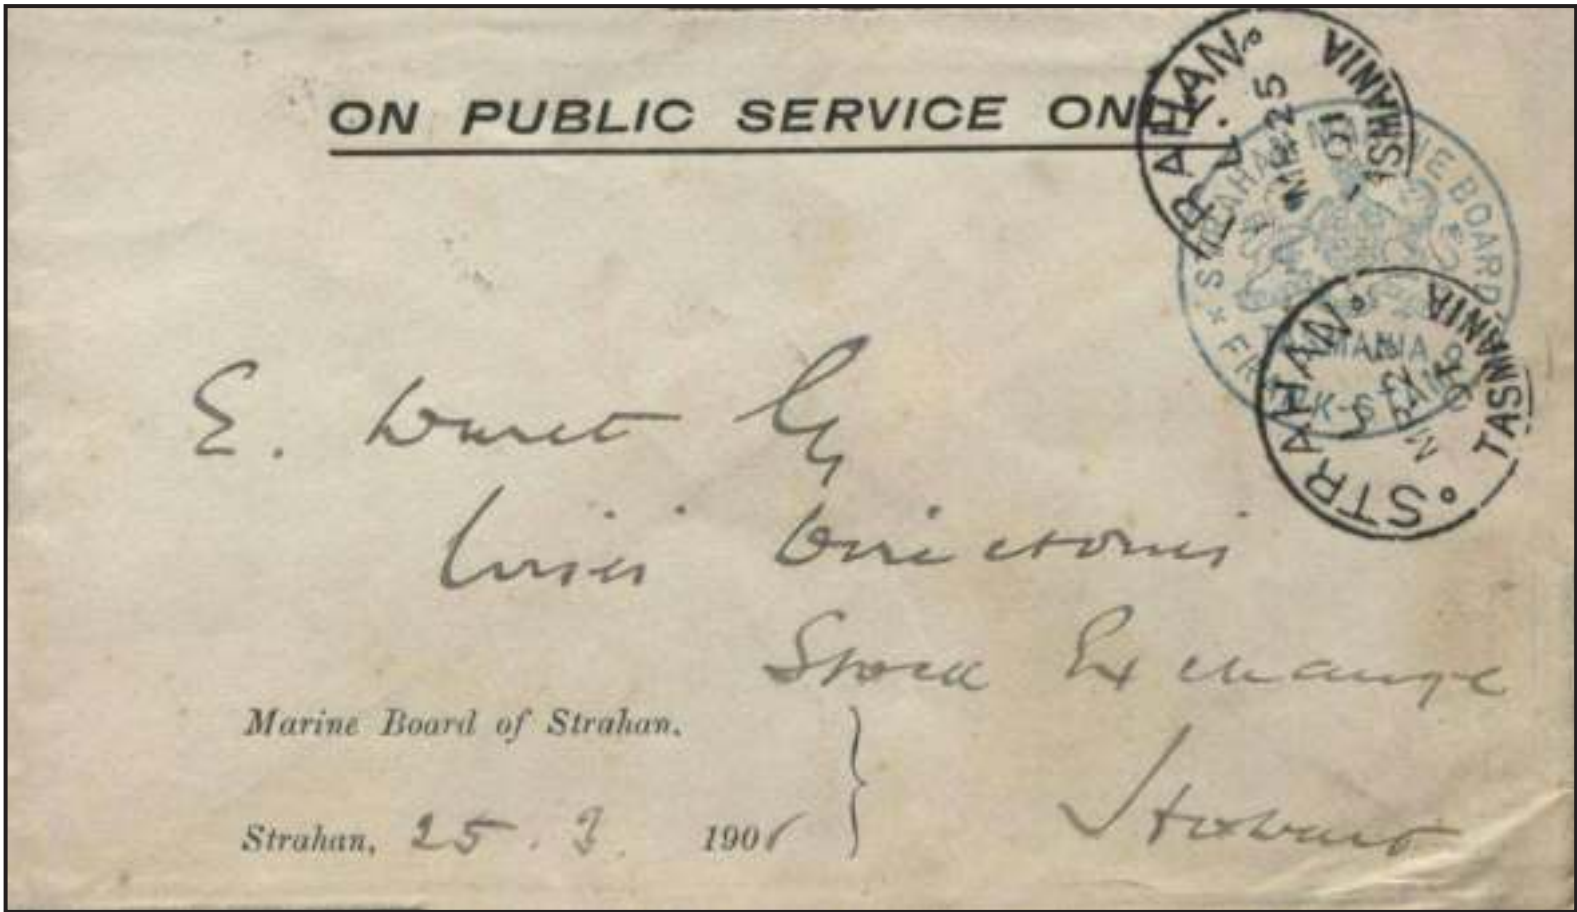 ON PUBLIC SERVICE ONLY.
STRAHAN
TASMANIA
MR 25
01
STRAHAN MARINE BOARD
TASMANIA
FRANK-STAMP
STRAHAN
TASMANIA
E.
Directories
Stock Exchange
Hobart
Marine Board of Strahan.
Strahan, 25.3 1901